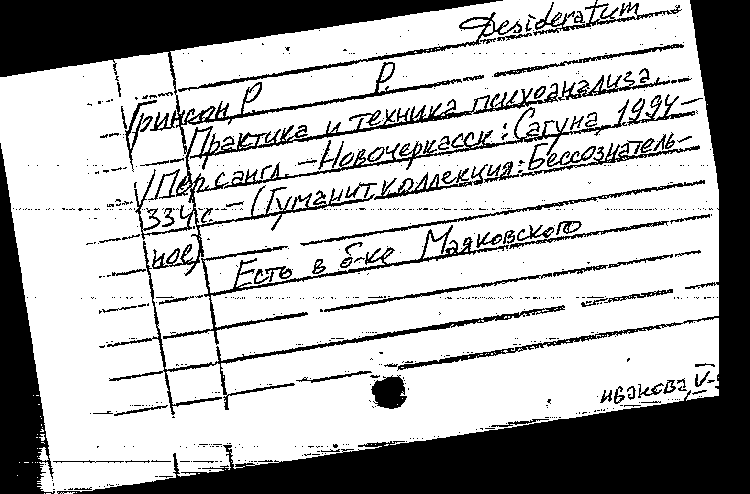 Desideratum
Гринсон, Р Р.
Практика и техника психоанализа.
/Пер. с англ. – Новочеркасск: Сагуна, 1994 –
334 с – (Гуманит. коллекция: Бессознатель-
ное)
Есть в б-ке Маяковского
иванова, V-